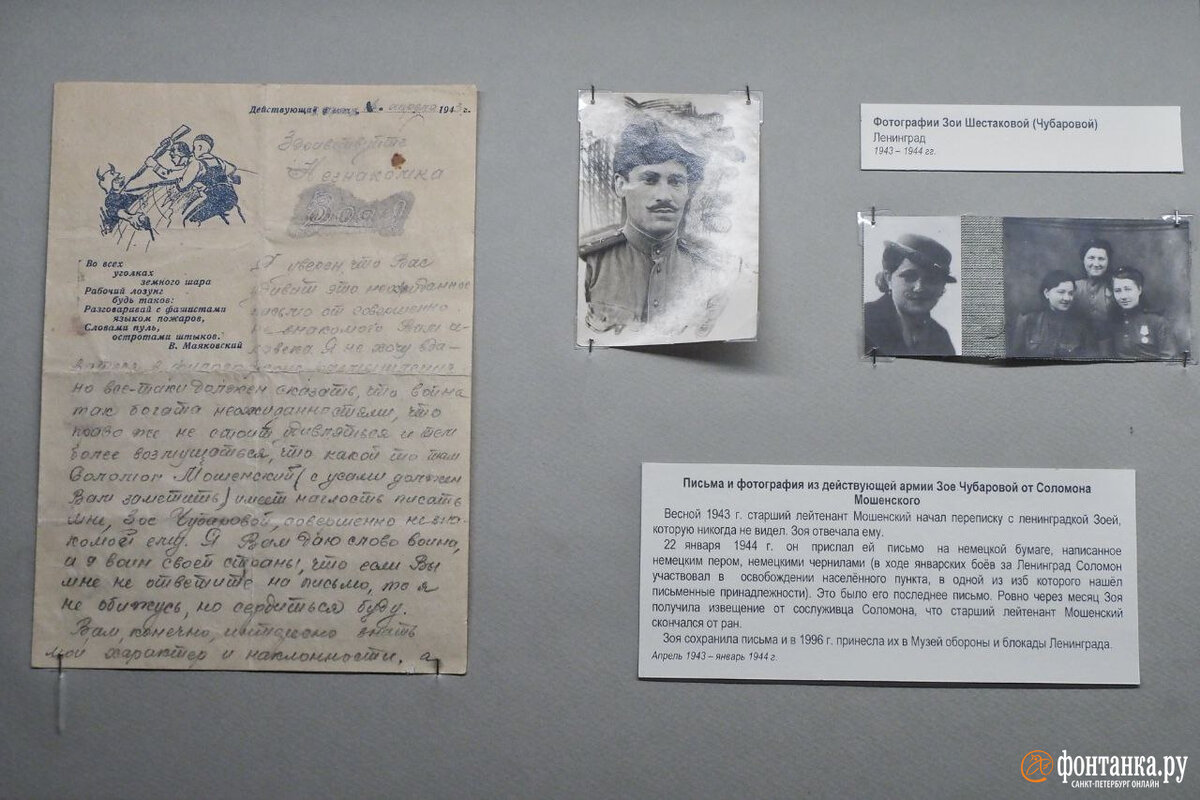 Действующая армия, апреля 1943 г.
Здравствуйте
Незнакомка
Зоя!
"Во всех
уголках
земного шара
Рабочий лозунг
будь таков:
Разговаривай с фашистами
языком пожаров,
Словами пуль,
остротами штыков."
В. Маяковский
Я уверен, что Вас
это неожиданное
письмо от совершенно
незнакомого Вам че-
ловека. Я не хочу вда-
ваться в
но все-таки должен сказать, что война
так богата неожиданностями, что
право же не стоит удивляться и тем
более возмущаться, что какой то там
Соломон Мошенский (с усами должен
Вам заметить) имеет наглость писать
мне, Зое Чубаровой, совершенно незна-
комой ему. Я Вам даю слово воина,
а я воин своей страны, что если Вы
мне не ответите на письмо, то я
не обижусь, но сердиться буду.
Вам, конечно, интересно знать
мой характер и наклонности, а
Фотографии Зои Шестаковой (Чубаровой)
Ленинград
1943 – 1944 гг.
Письма и фотография из действующей армии Зое Чубаровой от Соломона
Мошенского
Весной 1943 г. старший лейтенант Мошенский начал переписку с ленинградкой Зоей,
которую никогда не видел. Зоя отвечала ему.
22 января 1944 г. он прислал ей письмо на немецкой бумаге, написанное
немецким пером, немецкими чернилами (в ходе январских боёв за Ленинград Соломон
участвовал в освобождении населённого пункта, в одной из изб которого нашёл
письменные принадлежности). Это было его последнее письмо. Ровно через месяц Зоя
получила извещение от сослуживца Соломона, что старший лейтенант Мошенский
скончался от ран.
Зоя сохранила письма и в 1996 г. принесла их в Музей обороны и блокады Ленинграда.
Апрель 1943 – январь 1944 г.
фонтанка.ру
САНКТ-ПЕТЕРБУРГ ОНЛАЙН